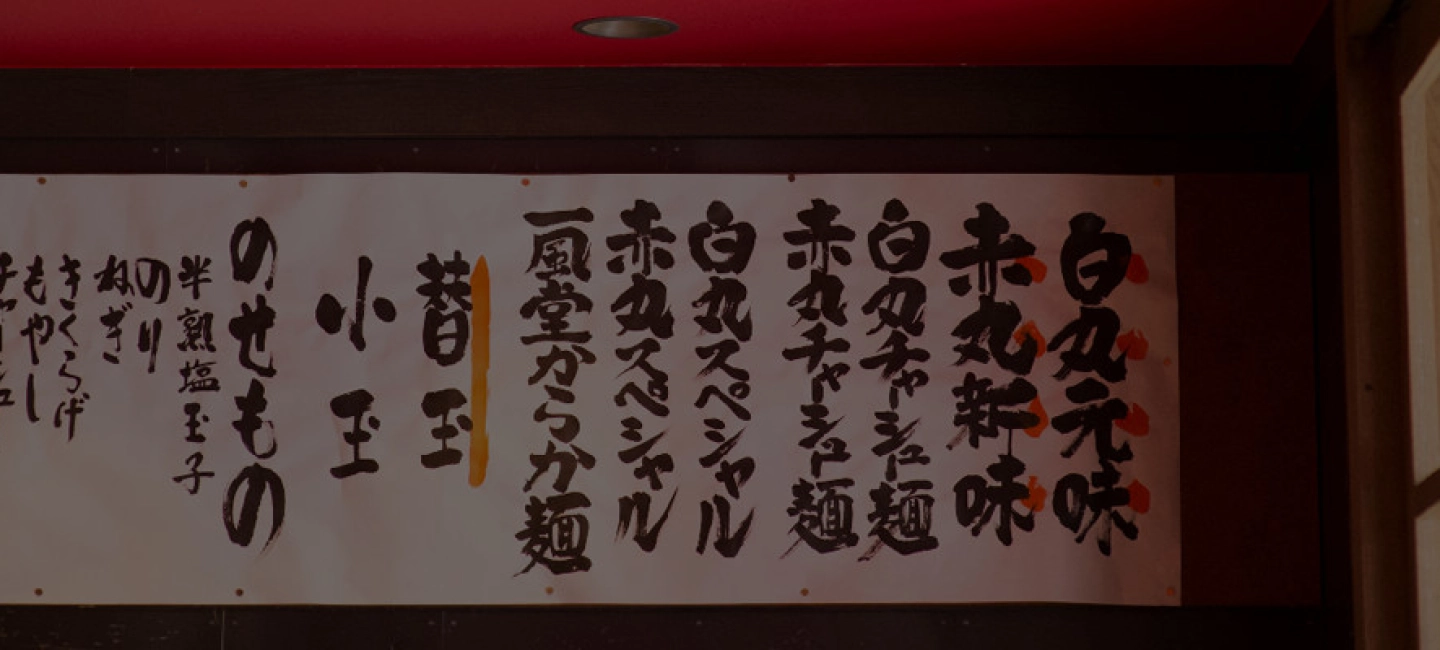 白丸元味
赤丸新味
白丸チャーシュー麺
赤丸チャーシュー麺
白丸スペシャル
赤丸スペシャル
一風堂からか麺
替玉
小玉
のせもの
半熟塩玉子
のり
ねぎ
きくらげ
もやし